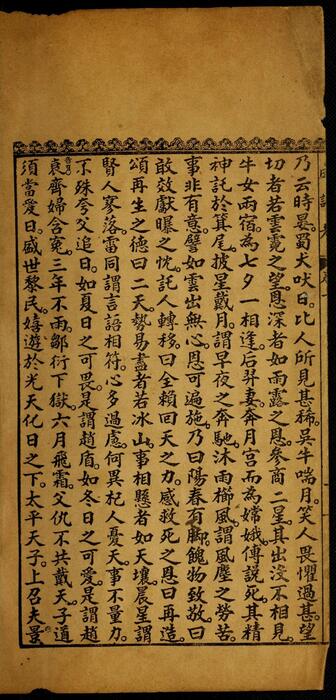 乃云時晏。蜀犬吠日。比人所見甚稀。吳牛喘月。笑人畏懼過甚。望
切者若雲霓之望。恩深者如雨露之恩。參商二星。其出沒不相見。
牛女兩宿。為七夕一相逢。后羿妻。奔月宮而為嫦娥。傅說死。其精
神託於箕尾。披星戴月。謂早夜之奔馳。沐雨櫛風。謂風塵之勞苦。
事非有意。譬如雲出無心。恩可遍施。乃曰陽春有腳。餽物致敬。曰
敢效獻曝之忱。託人轉移。曰全賴回天之力。感救死之恩。曰再造。
頌再生之德。曰二天。勢易盡者若冰山。事相懸者如天壤。晨星謂
賢人寥落。雷同謂言語相符。心多過慮。何異杞人憂天。事不量力。
不殊夸父追日。如夏日之可畏。是謂趙盾。如冬日之可愛。是謂趙
衰。齊婦含冤。三年不雨。鄒衍下獄。六月飛霜。父仇不共戴天。子道
須當愛日。盛世黎民。嬉遊於光天化日之下。太平天子。上召夫景